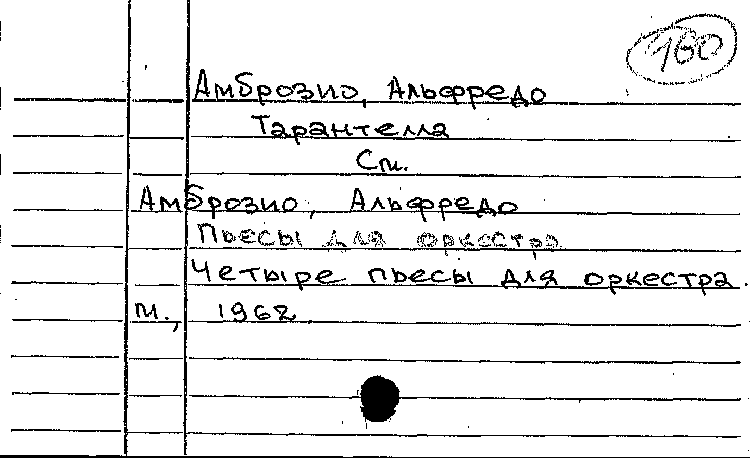 160
Амброзио, Альфредо
Тарантелла
См.
Амброзио, Альфредо
Пьесы для оркестра
Четыре пьесы для оркестра.
М., 1962